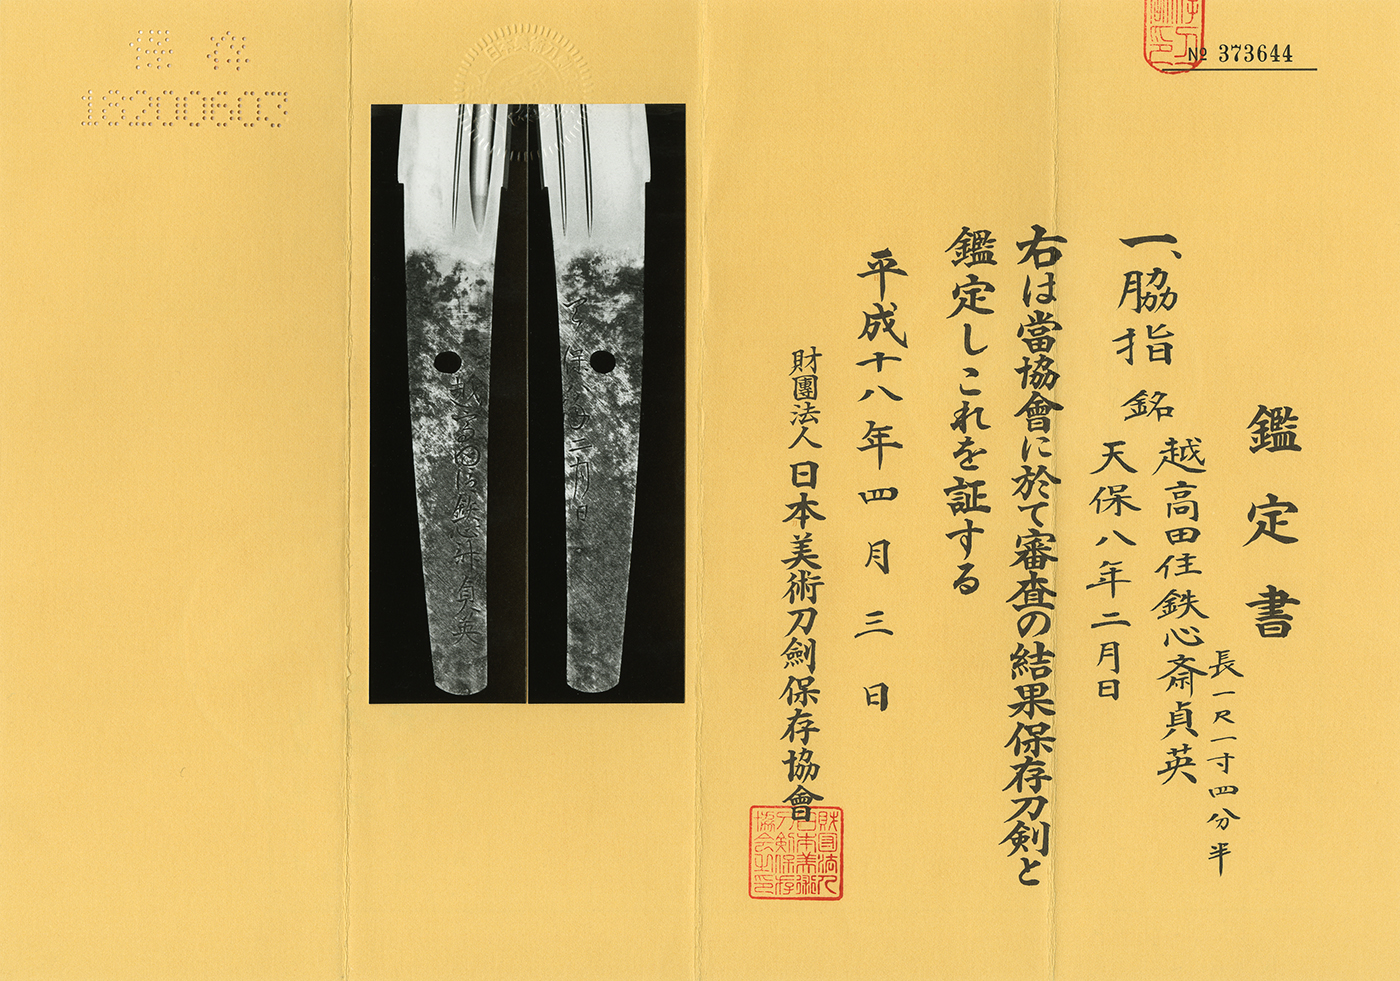 No 373644
鑑定書
一、脇指 銘 越高田住鉄心斎貞英
天保八年二月日
長一尺一寸四分半
右は當協會に於て審査の結果保存刀剣と
鑑定しこれを証する
平成十八年四月三日
財團法人日本美術刀劍保存協會
財団法人
日本美術
刀剣保存
協会之印
天保八年二月日
越高田住鉄心斎貞英
保存
18200603